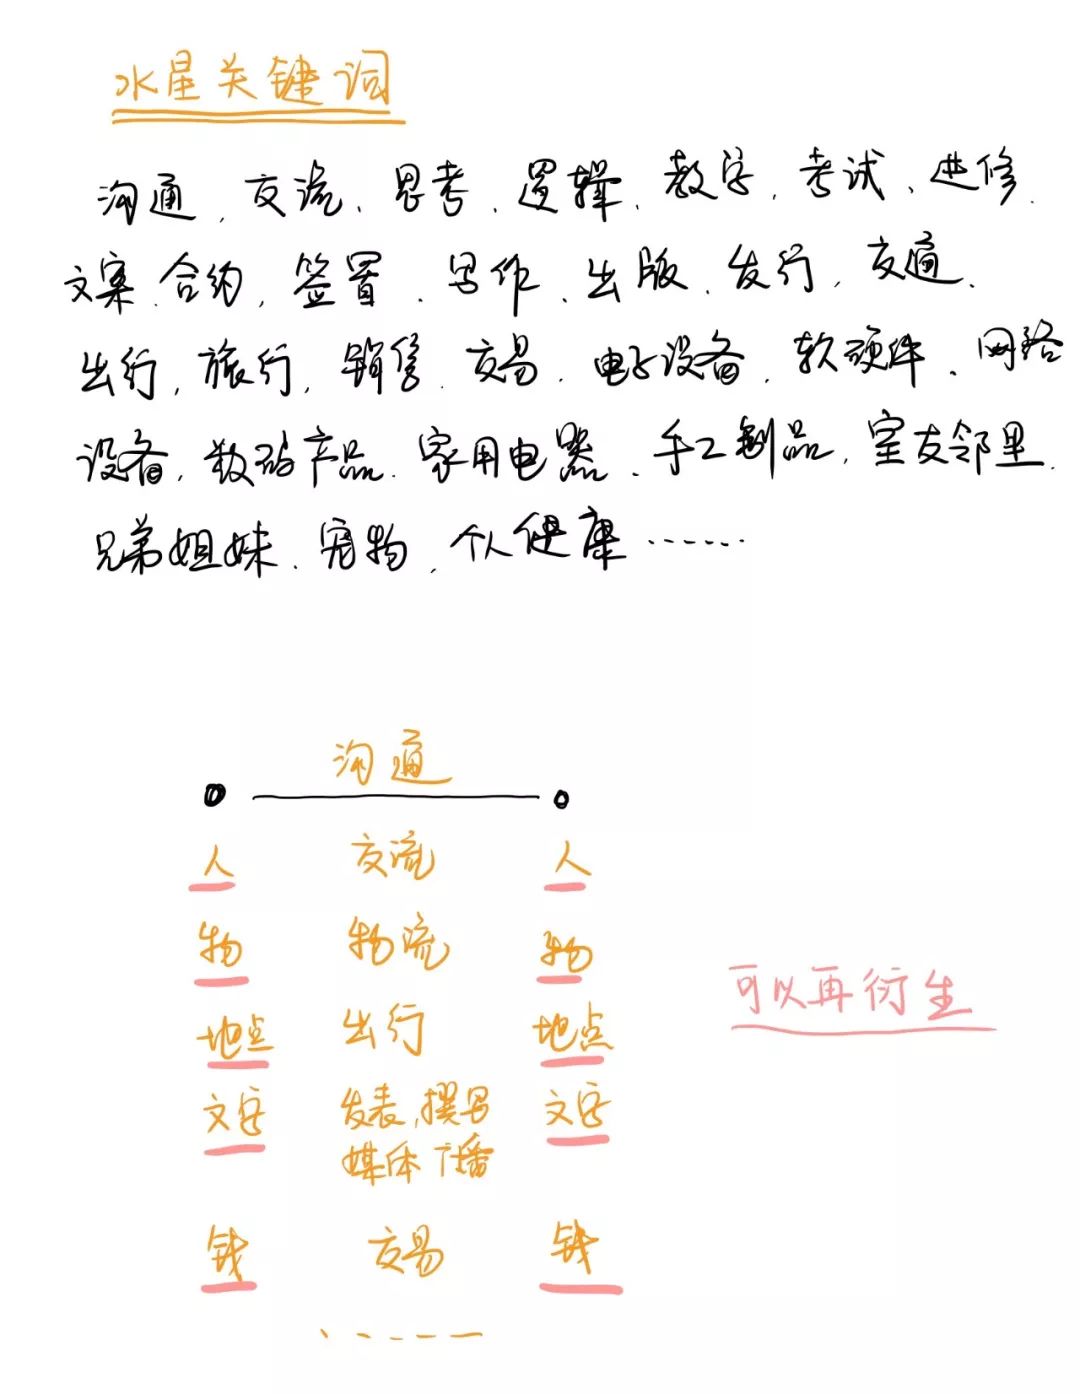 水星关键词
沟通、交流、思考、逻辑、教学、考试、进修、
文案、合约、签署、写作、出版、发行、交通、
出行、旅行、销售、交易、电子设备、软硬件、网络
设备、数码产品、家用电器、手工制品、室友邻里、
兄弟姐妹、宠物、个人健康……
沟通
人 交流 人
物 物流 物
可以再衍生
地点 出行 地点
文字 发表、撰写 文字
媒体广播
钱 交易 钱
……